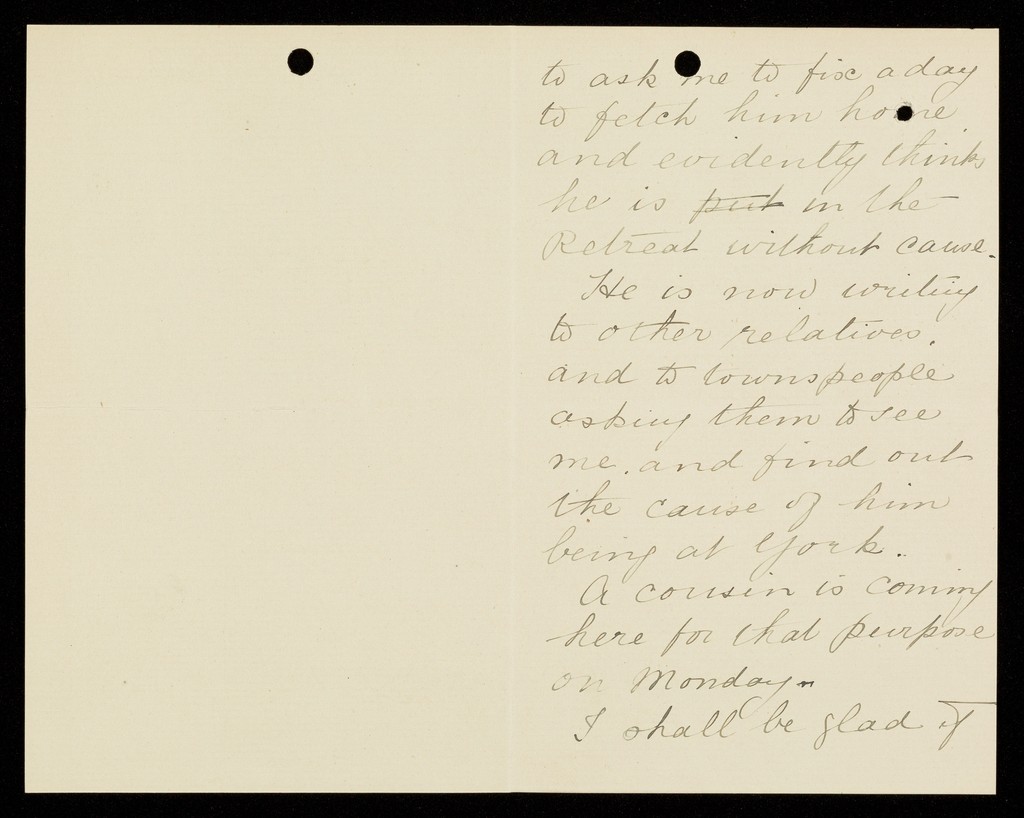 to ask me to fix a day
to fetch him home
and evidently thinks
he is put in the
Retreat without cause.
He is now writing
to other relatives,
and to townspeople
asking them to see
me, and find out
the cause of him
being at York.
A cousin is coming
here for that purpose
on Monday.
I shall be glad if